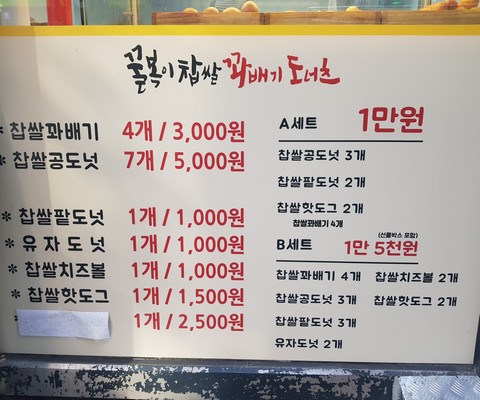 꿀복이 찹쌀 꽈배기 도너츠
* 찹쌀꽈배기 4개 / 3,000원
* 찹쌀공도넛 7개 / 5,000원
* 찹쌀팥도넛 1개 / 1,000원
* 유자도넛 1개 / 1,000원
* 찹쌀치즈볼 1개 / 1,000원
* 찹쌀핫도그 1개 / 1,500원
* 1개 / 2,500원
A세트 1만원
찹쌀공도넛 3개
찹쌀팥도넛 2개
찹쌀핫도그 2개
찹쌀꽈배기 4개
(선물박스 포함)
B세트 1만 5천원
찹쌀꽈배기 4개 찹쌀치즈볼 2개
찹쌀공도넛 3개 찹쌀핫도그 2개
찹쌀팥도넛 3개
유자도넛 2개